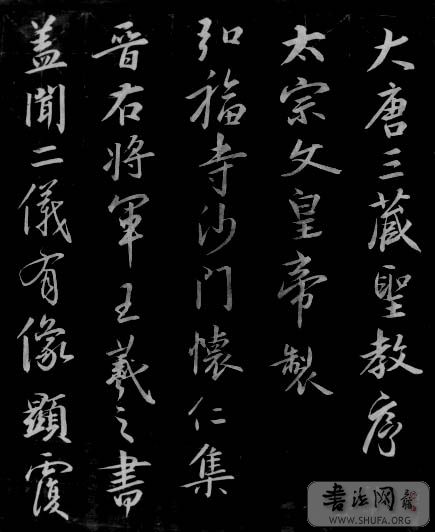 大唐三藏聖教序
太宗文皇帝製
弘福寺沙門懷仁集
晉右將軍王羲之書
蓋聞二儀有像顯覆
書法网
WWW.SHUFA.ORG